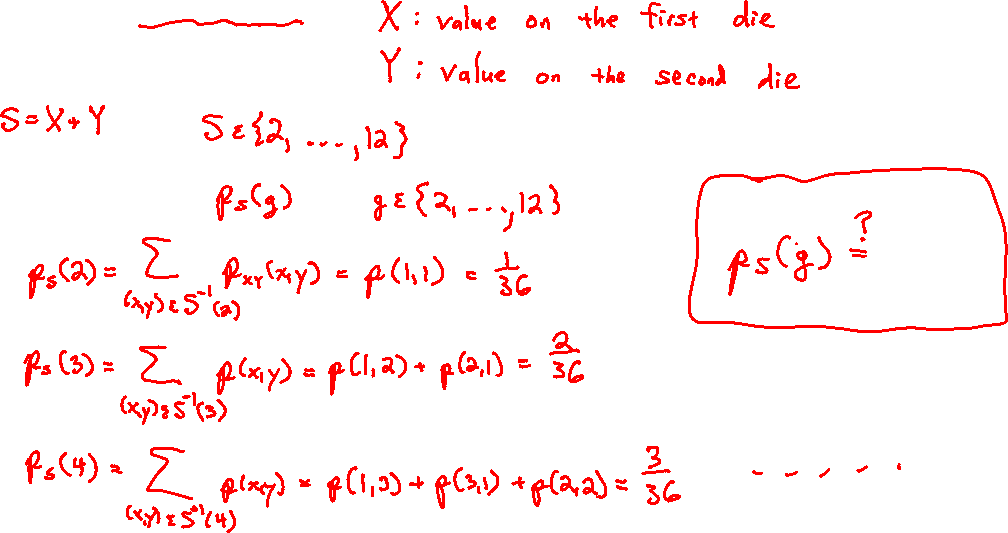 X : value on the first die
Y : value on the second die
S = X + Y S ε {2, ..., 12}
p_S(g) g ε {2, ..., 12}
p_S(g) ?=
p_S(2) = ∑_{(x,y) ε S^{-1}(2)} p_{XY}(x,y) = p(1,1) = 1/36
p_S(3) = ∑_{(x,y) ε S^{-1}(3)} p(x,y) = p(1,2) + p(2,1) = 2/36
p_S(4) = ∑_{(x,y) ε S^{-1}(4)} p(x,y) = p(1,3) + p(3,1) + p(2,2) = 3/36 - - - - .